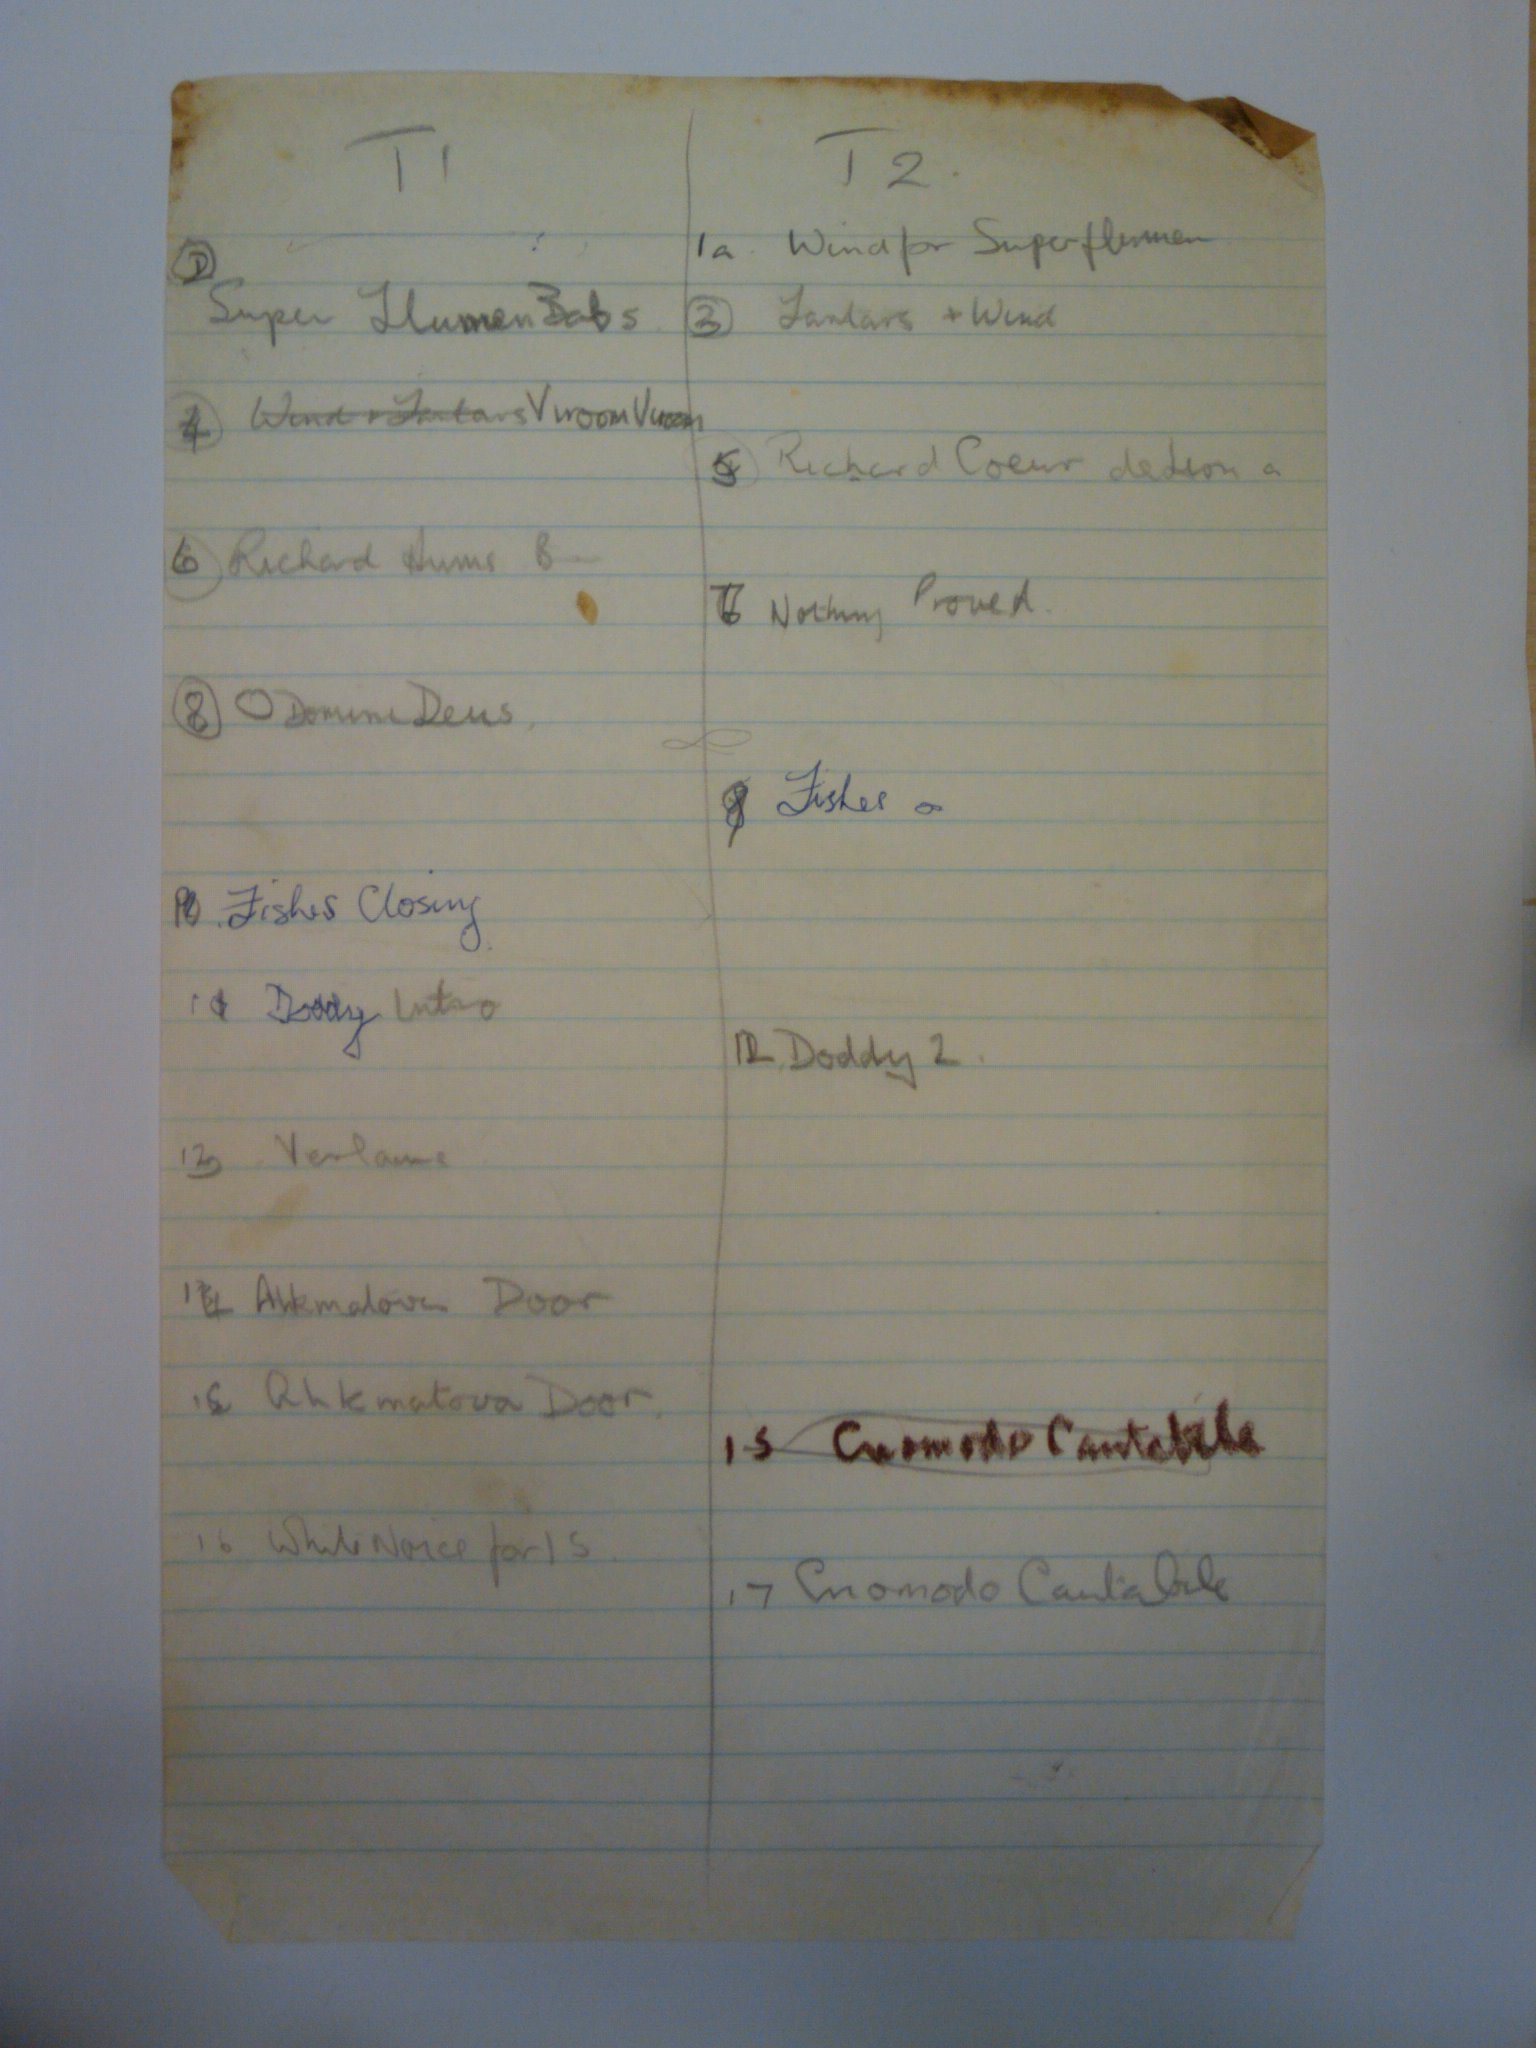 T1
T2.
1a. Wind for Superflumen
Super Flumen Babs
3 Fanfars + Wind
4 Wind + Fanfars Vroom Vroom
5 Richard Coeur de Leon a
6 Richard Hums B
7 Nothing Proved.
8 O Domine Deus
9 Fishes a
10. Fishes Closing
11 Doddy Intro
12. Doddy 2.
13 Verlaine
14 Ahkmatova Door
15 Ahkmatova Door.
15 Cuomodo Cantabile
16 White Noice for 15.
17 Cuomodo Cantabile